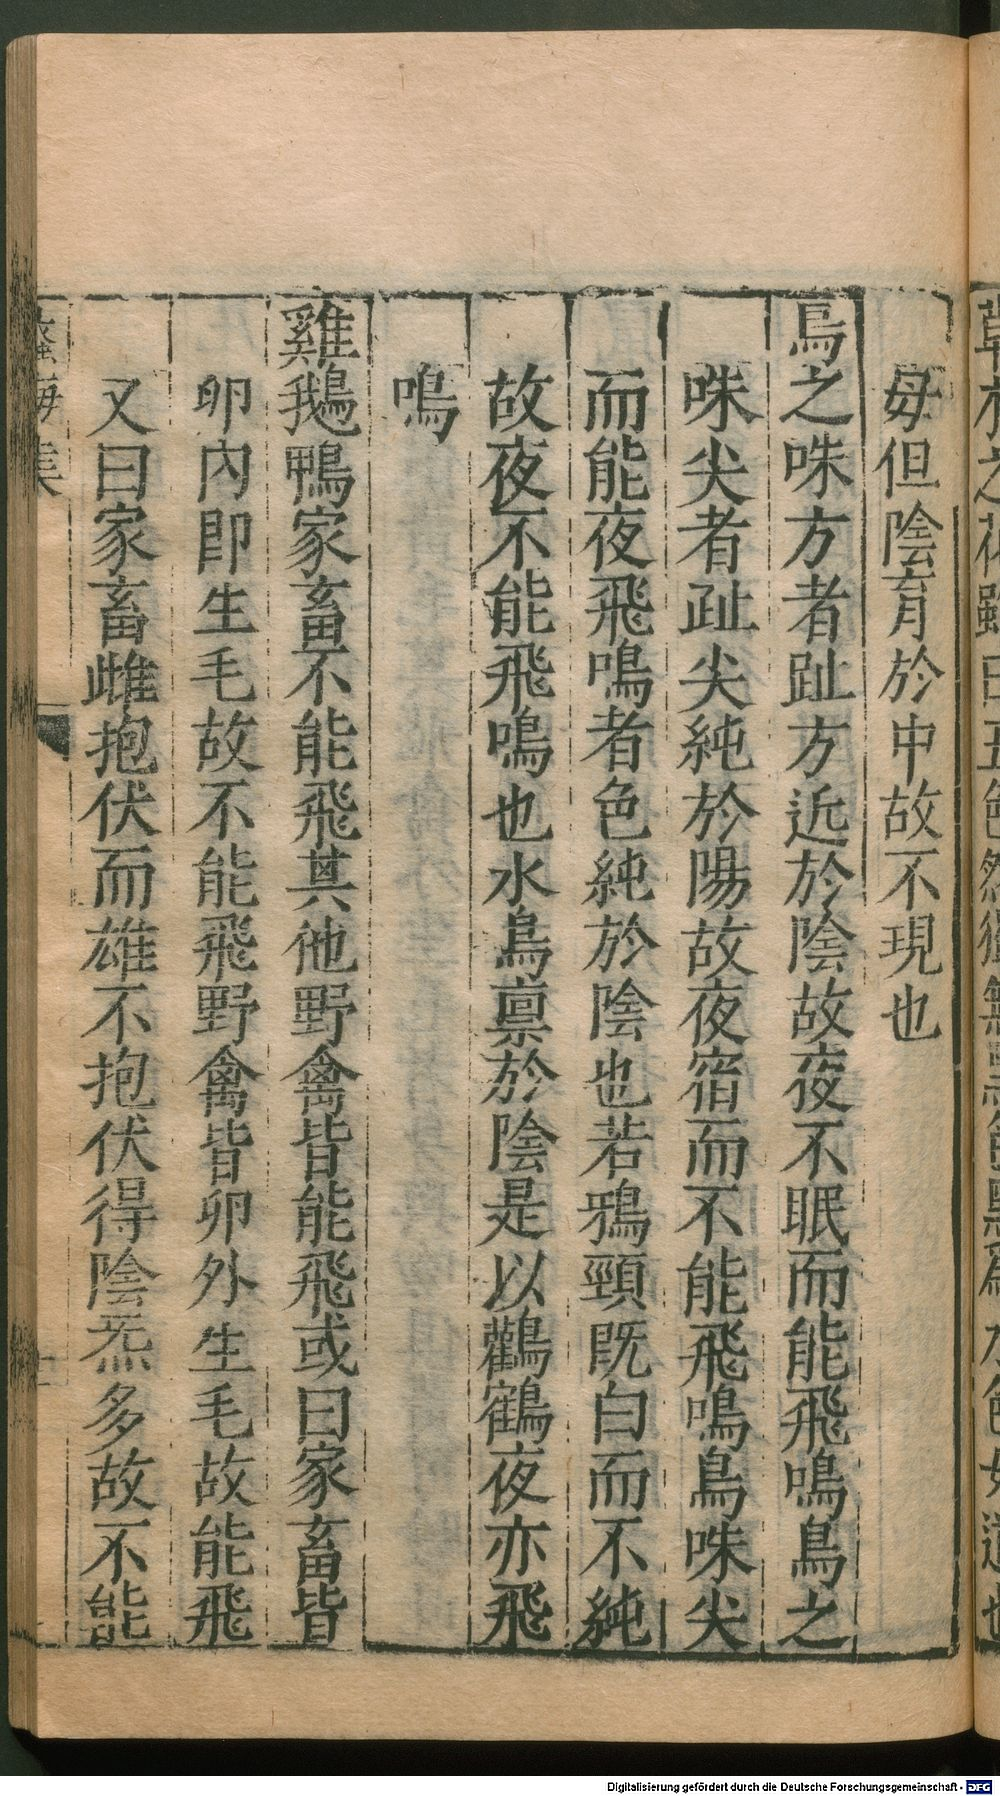 毋但陰育於中故不現也
鳥之咮方者趾方近於陰故夜不眠而能飛鳴鳥之
咮尖者趾尖純於陽故夜宿而不能飛鳴鳥咮尖
而能夜飛鳴者色純於陰也若鴉頸既白而不純
故夜不能飛鳴也水鳥禀於陰是以鸛鶴夜亦飛
鳴
雞鵝鴨家畜不能飛其他野禽皆能飛或曰家畜皆
卵內即生毛故不能飛野禽皆卵外生毛故能飛
又曰家畜雌抱伏而雄不抱伏得陰炁多故不能
蠡海集
Digitalisierung gefördert durch die Deutsche Forschungsgemeinschaft - DFG